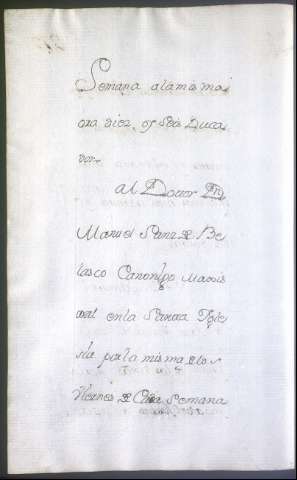 Semana a la misma
ora diez, y seis Duca
dos.
al Doctor Dn
Manuel Sanz de Be
lasco Canonigo Magis
tral en la Santa Igle
sia por la misma de los
Viernes de Cada semana